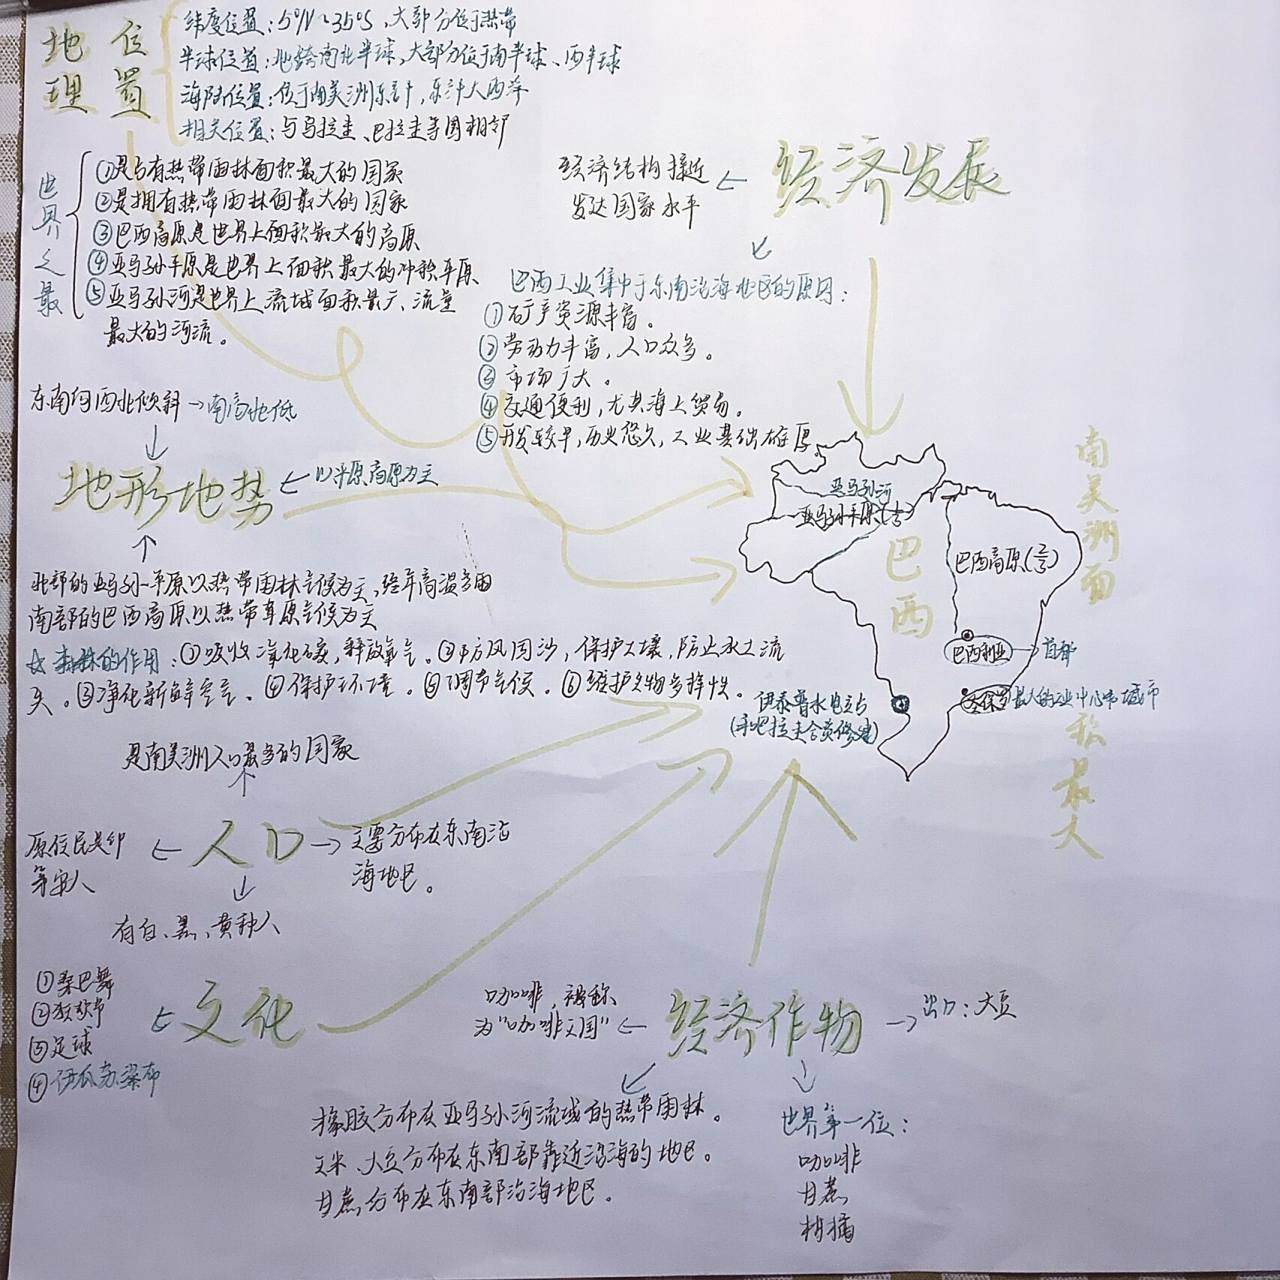 地理位置
纬度位置：5°N~35°S，大部分位于热带
半球位置：地跨南北半球，大部分位于南半球、西半球
海陆位置：位于南美洲东部，东汁大西洋
相关位置：与乌拉圭、巴拉圭等国相邻
世界之最
①是占有热带雨林面积最大的国家
②是拥有热带雨林面最大的国家
③巴西高原是世界上面积最大的高原
④亚马孙平原是世界上面积最大的冲积平原
⑤亚马孙河是世界上流域面积最广、流量
最大的河流。
经济发展
经济结构接近
发达国家水平
巴西工业集中于东南沿海地区的原因：
①矿产资源丰富。
②劳动力丰富，人口众多。
③市场广大。
④交通便利，尤其海上贸易。
⑤开发较早，历史悠久，工业基础雄厚。
东南向西北倾斜→南高北低
地形地势
以平原高原为主
北部的亚马孙平原以热带雨林气候为主，终年高温多雨
南部的巴西高原以热带草原气候为主
☆森林的作用：①吸收二氧化碳，释放氧气。②防风固沙，保护土壤，防止水土流
失。③净化新鲜空气。④保护环境。⑤调节气候。⑥维护生物多样性。
亚马孙河
亚马孙平原(一)
巴西高原(二)
巴西
巴西利亚→首都
圣保罗 最大的工业中心和城市
伊泰普水电站
(和巴拉圭合资修建)
南美洲面积最大
是南美洲人口最多的国家
人口
原住民是印
第安人
主要分布在东南沿
海地区。
有白、黑、黄种人
文化
①桑巴舞
②狂欢节
③足球
④伊瓜苏瀑布
经济作物
咖啡，被称
为"咖啡王国"
出口：大豆
橡胶分布在亚马孙河流域的热带雨林。
玉米、大豆分布在东南部靠近沿海的地区。
甘蔗分布在东南部沿海地区。
世界第一位：
咖啡
甘蔗
柑橘